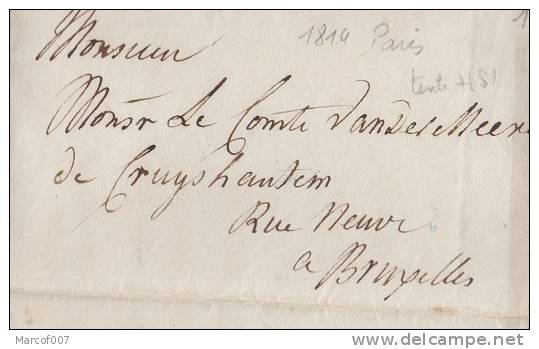 Monsieur
1814 Paris
1
texte +
Monsr Le Comte Vander Meere
de Cruyshautem
Rue Neuve
a Bruxelles
Marcof007
delcampe.net